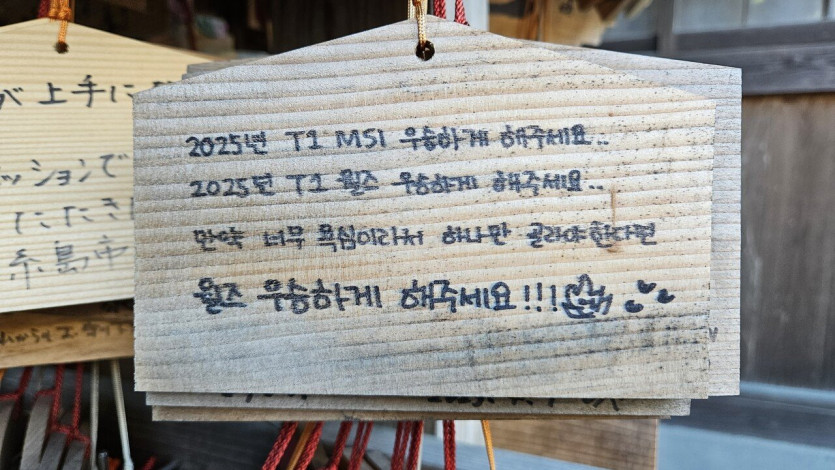 2025년 T1 MSI 우승하게 해주세요..
2025년 T1 월즈 우승하게 해주세요..
만약 너무 욕심이라서 하나만 골라야한다면
월즈 우승하게 해주세요!!!
が上手に
ッションで
たたき
糸島市